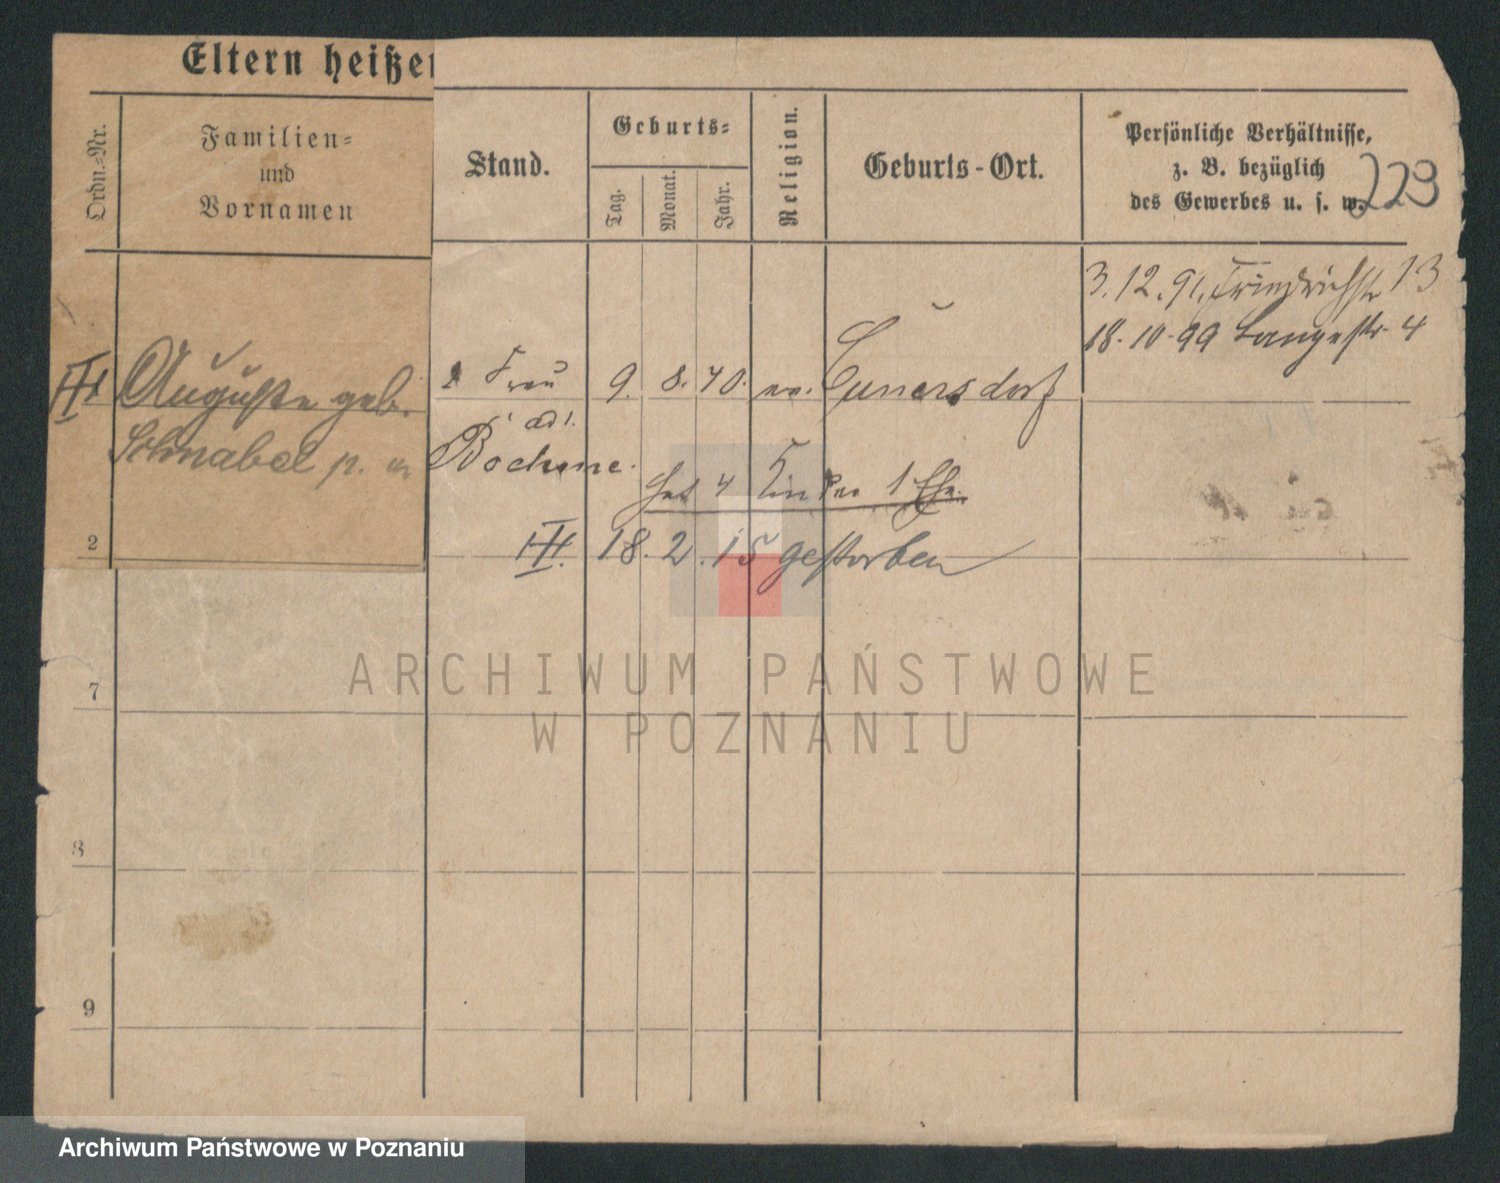 Eltern heißen
Ordn.-Nr.
Familien-
und
Vornamen
Stand.
Geburts-
Tag.
Monat.
Jahr.
Religion.
Geburts-Ort.
Persönliche Verhältnisse,
z. B. bezüglich
des Gewerbes u. s. w.
229
3.12.91. Friedrichstr 13
18.10.99 Langestr. 4
III Auguste geb. Frau 9. 8. 40. ev. Cunersdorf
Schnabel
hat 4 Kinder 1 Ehe.
2
III. 18. 2. 15 gestorben
ARCHIWUM PAŃSTWOWE
W POZNANIU
7
8
9
Archiwum Państwowe w Poznaniu